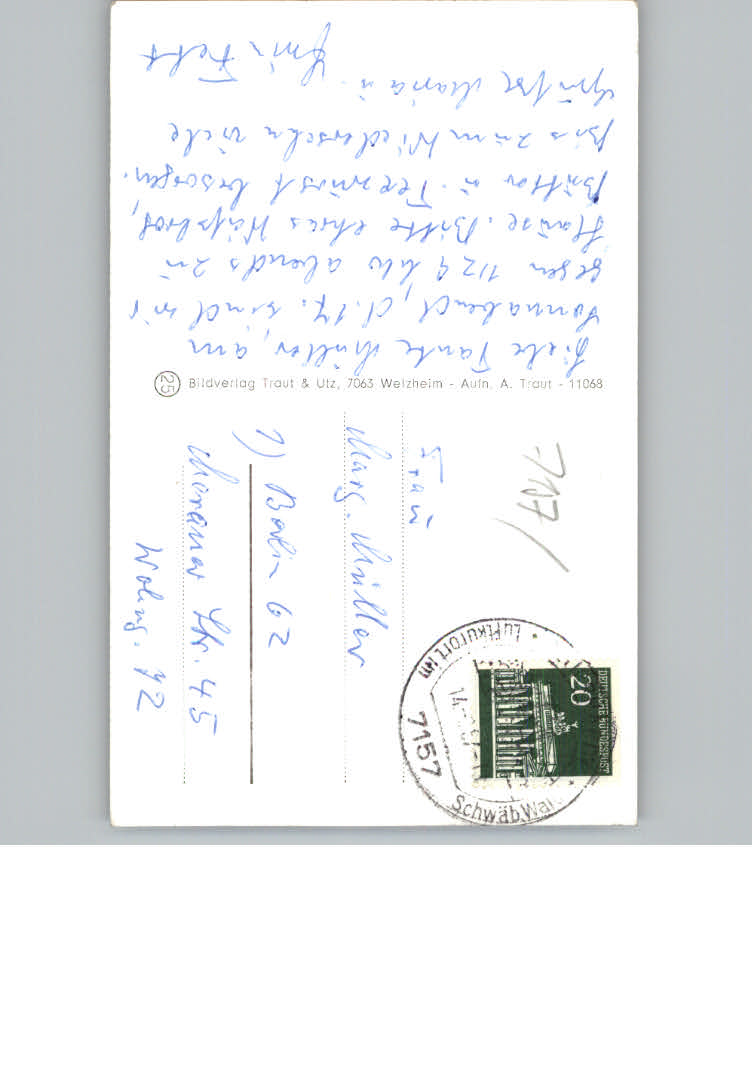 Liebe Tante Müller, am
Sonnabend, d. 17. sind wir
gegen 1/2 9 Uhr abends zu
Hause. Bitte etwas
Butter u. Teewurst besorgen.
Bis zum Wiedersehn viele
Grüße Maria u.
Bildverlag Traut & Utz, 7063 Welzheim - Aufn. A. Traut - 11068
25
Frau
Marg. Müller
1) Berlin 62
Meraner Str. 45
Wohng. 12
-7157/
DEUTSCHE BUNDESPOST
20
7157
Luftkurort im
Schwäb.Wald